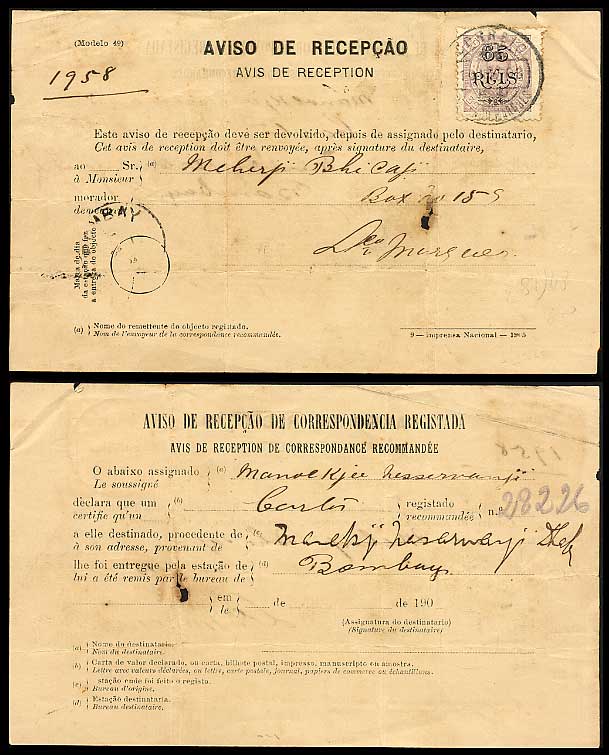 (Modelo 49)
AVISO DE RECEPÇÃO
AVIS DE RECEPTION
1958
CORREIO
65
RÉIS
Este aviso de recepção deve ser devolvido, depois de assignado pelo destinatario,
Cet avis de réception doit être renvoyée, après signature du destinataire,
ao Sr. (a) Meherji Bhicaji
à Monsieur
morador Box No 155
BAY
Lço Marques
Marca de dia
da estação que fez
a entrega do objecto
(a) Nome do remettente do objecto registado.
Nom de l'envoyeur de la correspondance recommandée.
9 — Imprensa Nacional — 1905
AVISO DE RECEPÇÃO DE CORRESPONDENCIA REGISTADA
AVIS DE RECEPTION DE CORRESPONDANCE RECOMMANDÉE
1958
O abaixo assignado (a) Manockjee Nesserwanji
Le soussigné
declara que um (b) Carta registado
certifie qu'un recommandée n.º 28226
a elle destinado, procedente de (c)
à son adresse, provenant de
lhe foi entregue pela estação de (d) Bombay
lui a été remis par le bureau de
em de de 190
le
(Assignatura do destinatario)
(Signature du destinataire)
(a) Nome do destinatario.
Nom du destinataire.
(b) Carta de valor declarado, ou carta, bilhete postal, impresso, manuscripto ou amostra.
Lettre avec valeurs déclarées, ou lettre, carte postale, journal, papiers de commerce ou échantillons.
(c) Estação onde foi feito o registo.
Bureau d'origine.
(d) Estação destinataria.
Bureau destinataire.